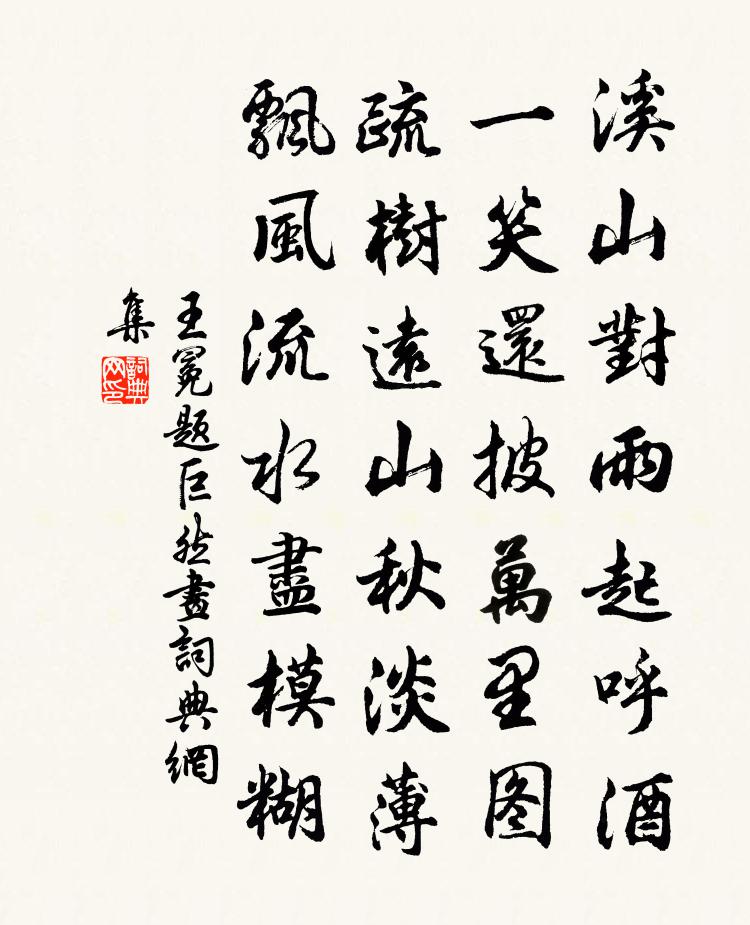 溪山對雨起呼酒
一笑還披萬里图
疏樹遠山秋淡薄
飄風流水盡模糊
王冕题巨然畫詞典網
集
詞典
网印